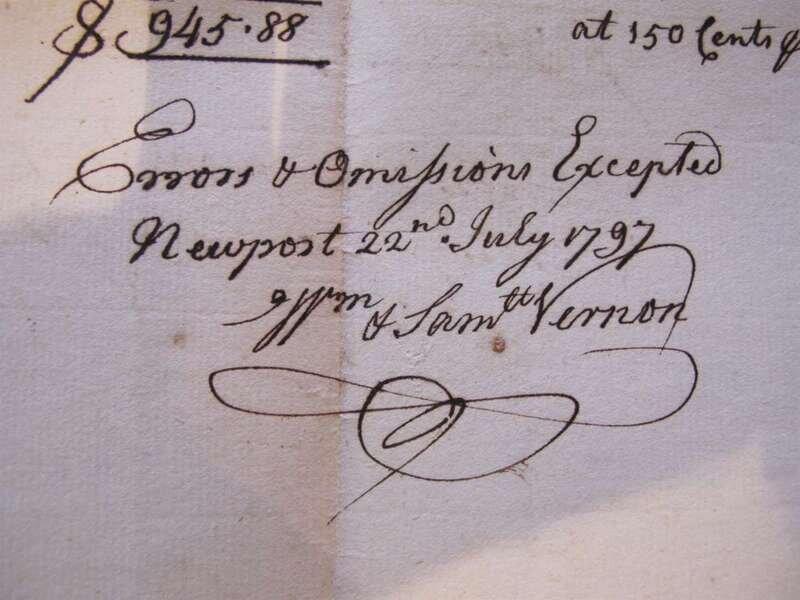 $ 945.88
at 150 Cents
Errors & Omissions Excepted
Newport 22nd July 1797
Wm & Samll Vernon